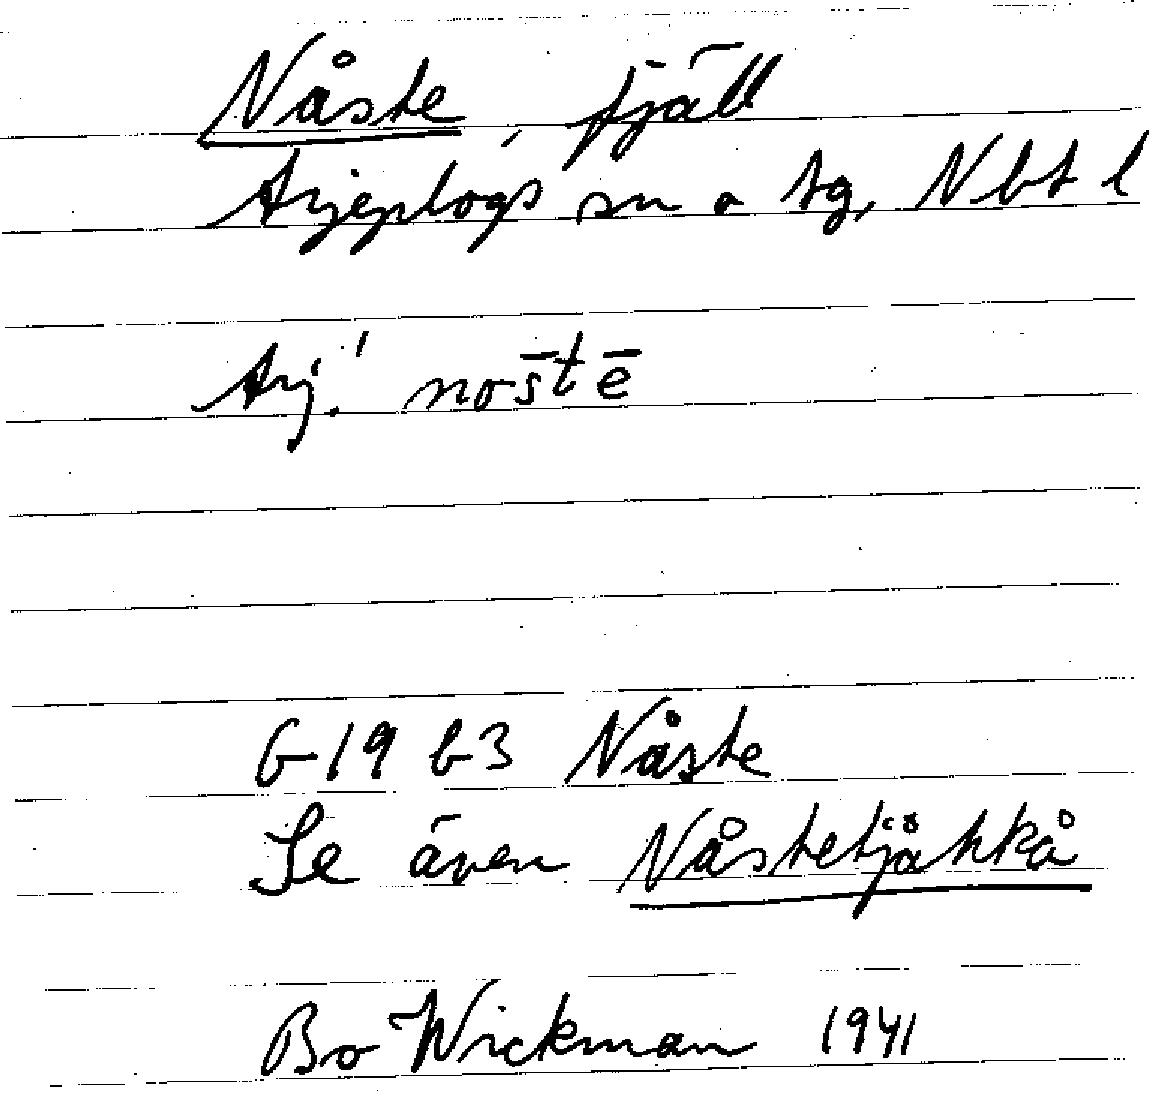 Nåste, fjäll
Arjeplogs sn o tg, Nbt l
Arj.' nos̄tē
G 19 b3 Nåste
Se även Nåstetjåhkå
Bo Wickman 1941